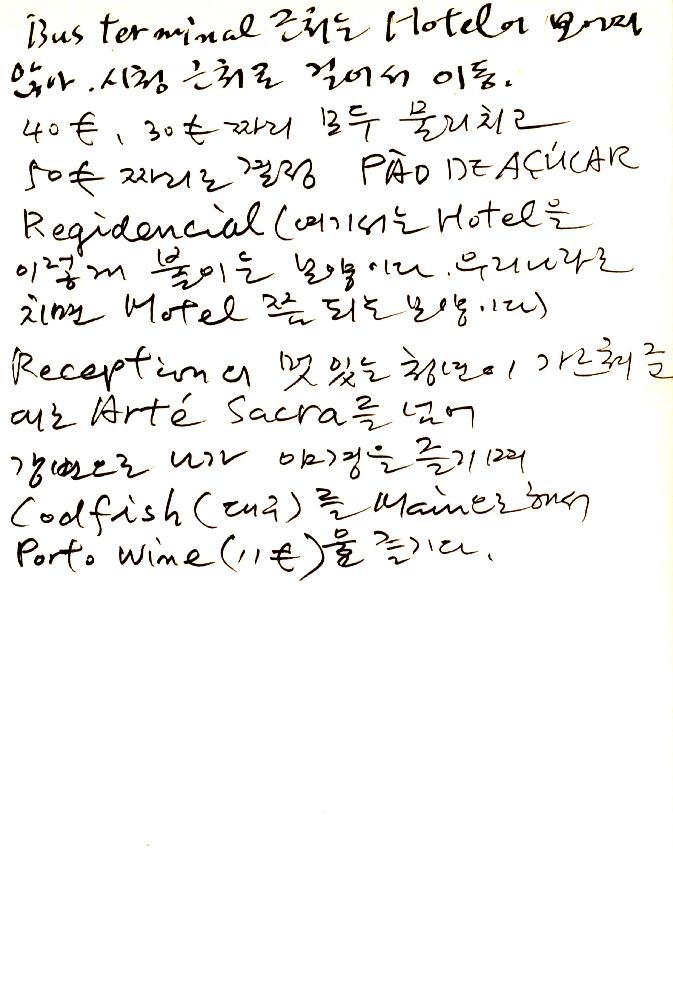 Bus terminal 근처는 Hotel이 보이지
않아. 시청 근처로 걸어서 이동.
40€, 30€ 짜리 모두 물리치고
50€ 짜리로 결정 PÃO DE AÇÚCAR
Regidencial (여기서는 Hotel을
이렇게 붙이는 모양이다. 우리나라로
치면 Motel 쯤 되는 모양이다)
Reception의 멋있는 청년이 가르쳐준
대로 Arté Sacra를 넘어
강변으로 나가 야경을 즐기며
Codfish (대구)를 Main으로 해서
Porto Wine (11€)을 즐기다.